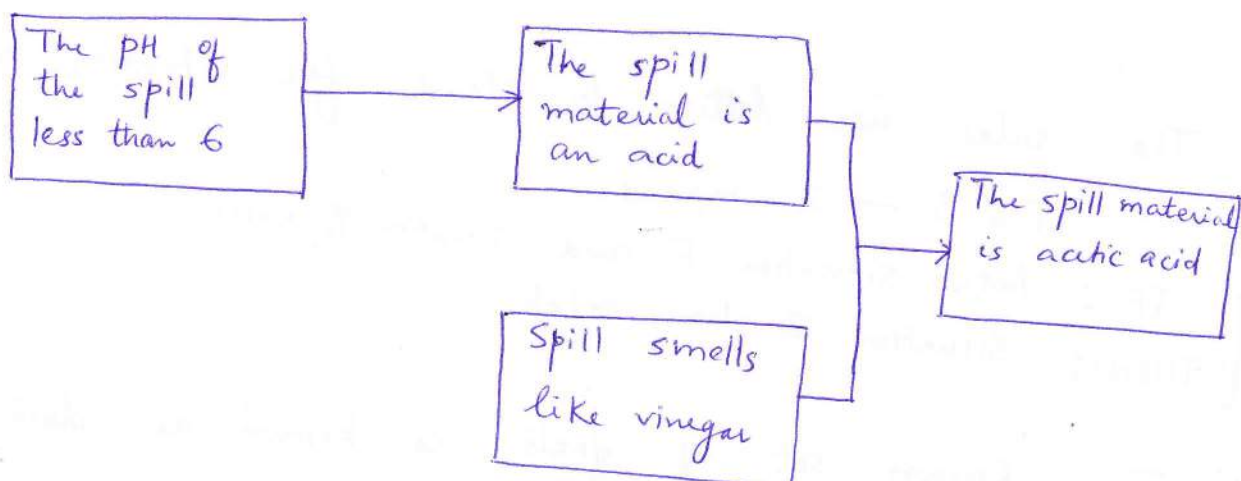 The pH of
the spill
less than 6
The spill
material is
an acid
Spill smells
like vinegar
The spill material
is acetic acid